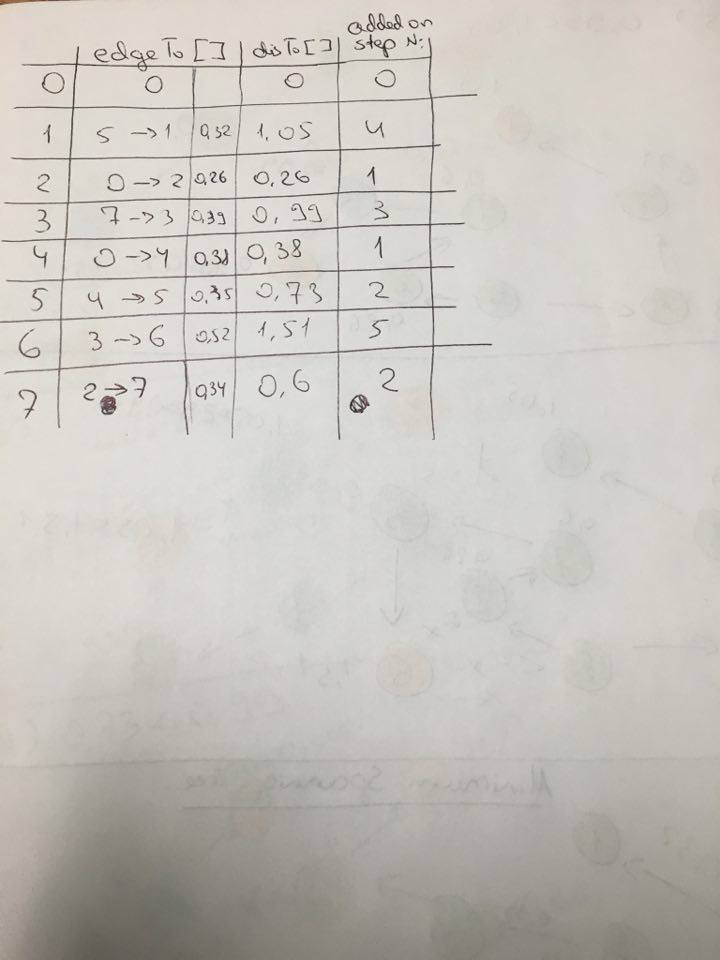 edgeTo [] disTo [] added on step N:
0 0 0 0
1 5 → 1 0,32 1,05 4
2 0 → 2 0,26 0,26 1
3 7 → 3 0,39 0,99 3
4 0 → 4 0,38 0,38 1
5 4 → 5 0,35 0,73 2
6 3 → 6 0,52 1,51 5
7 2 → 7 0,34 0,6 2
Minimum Spanning Tree